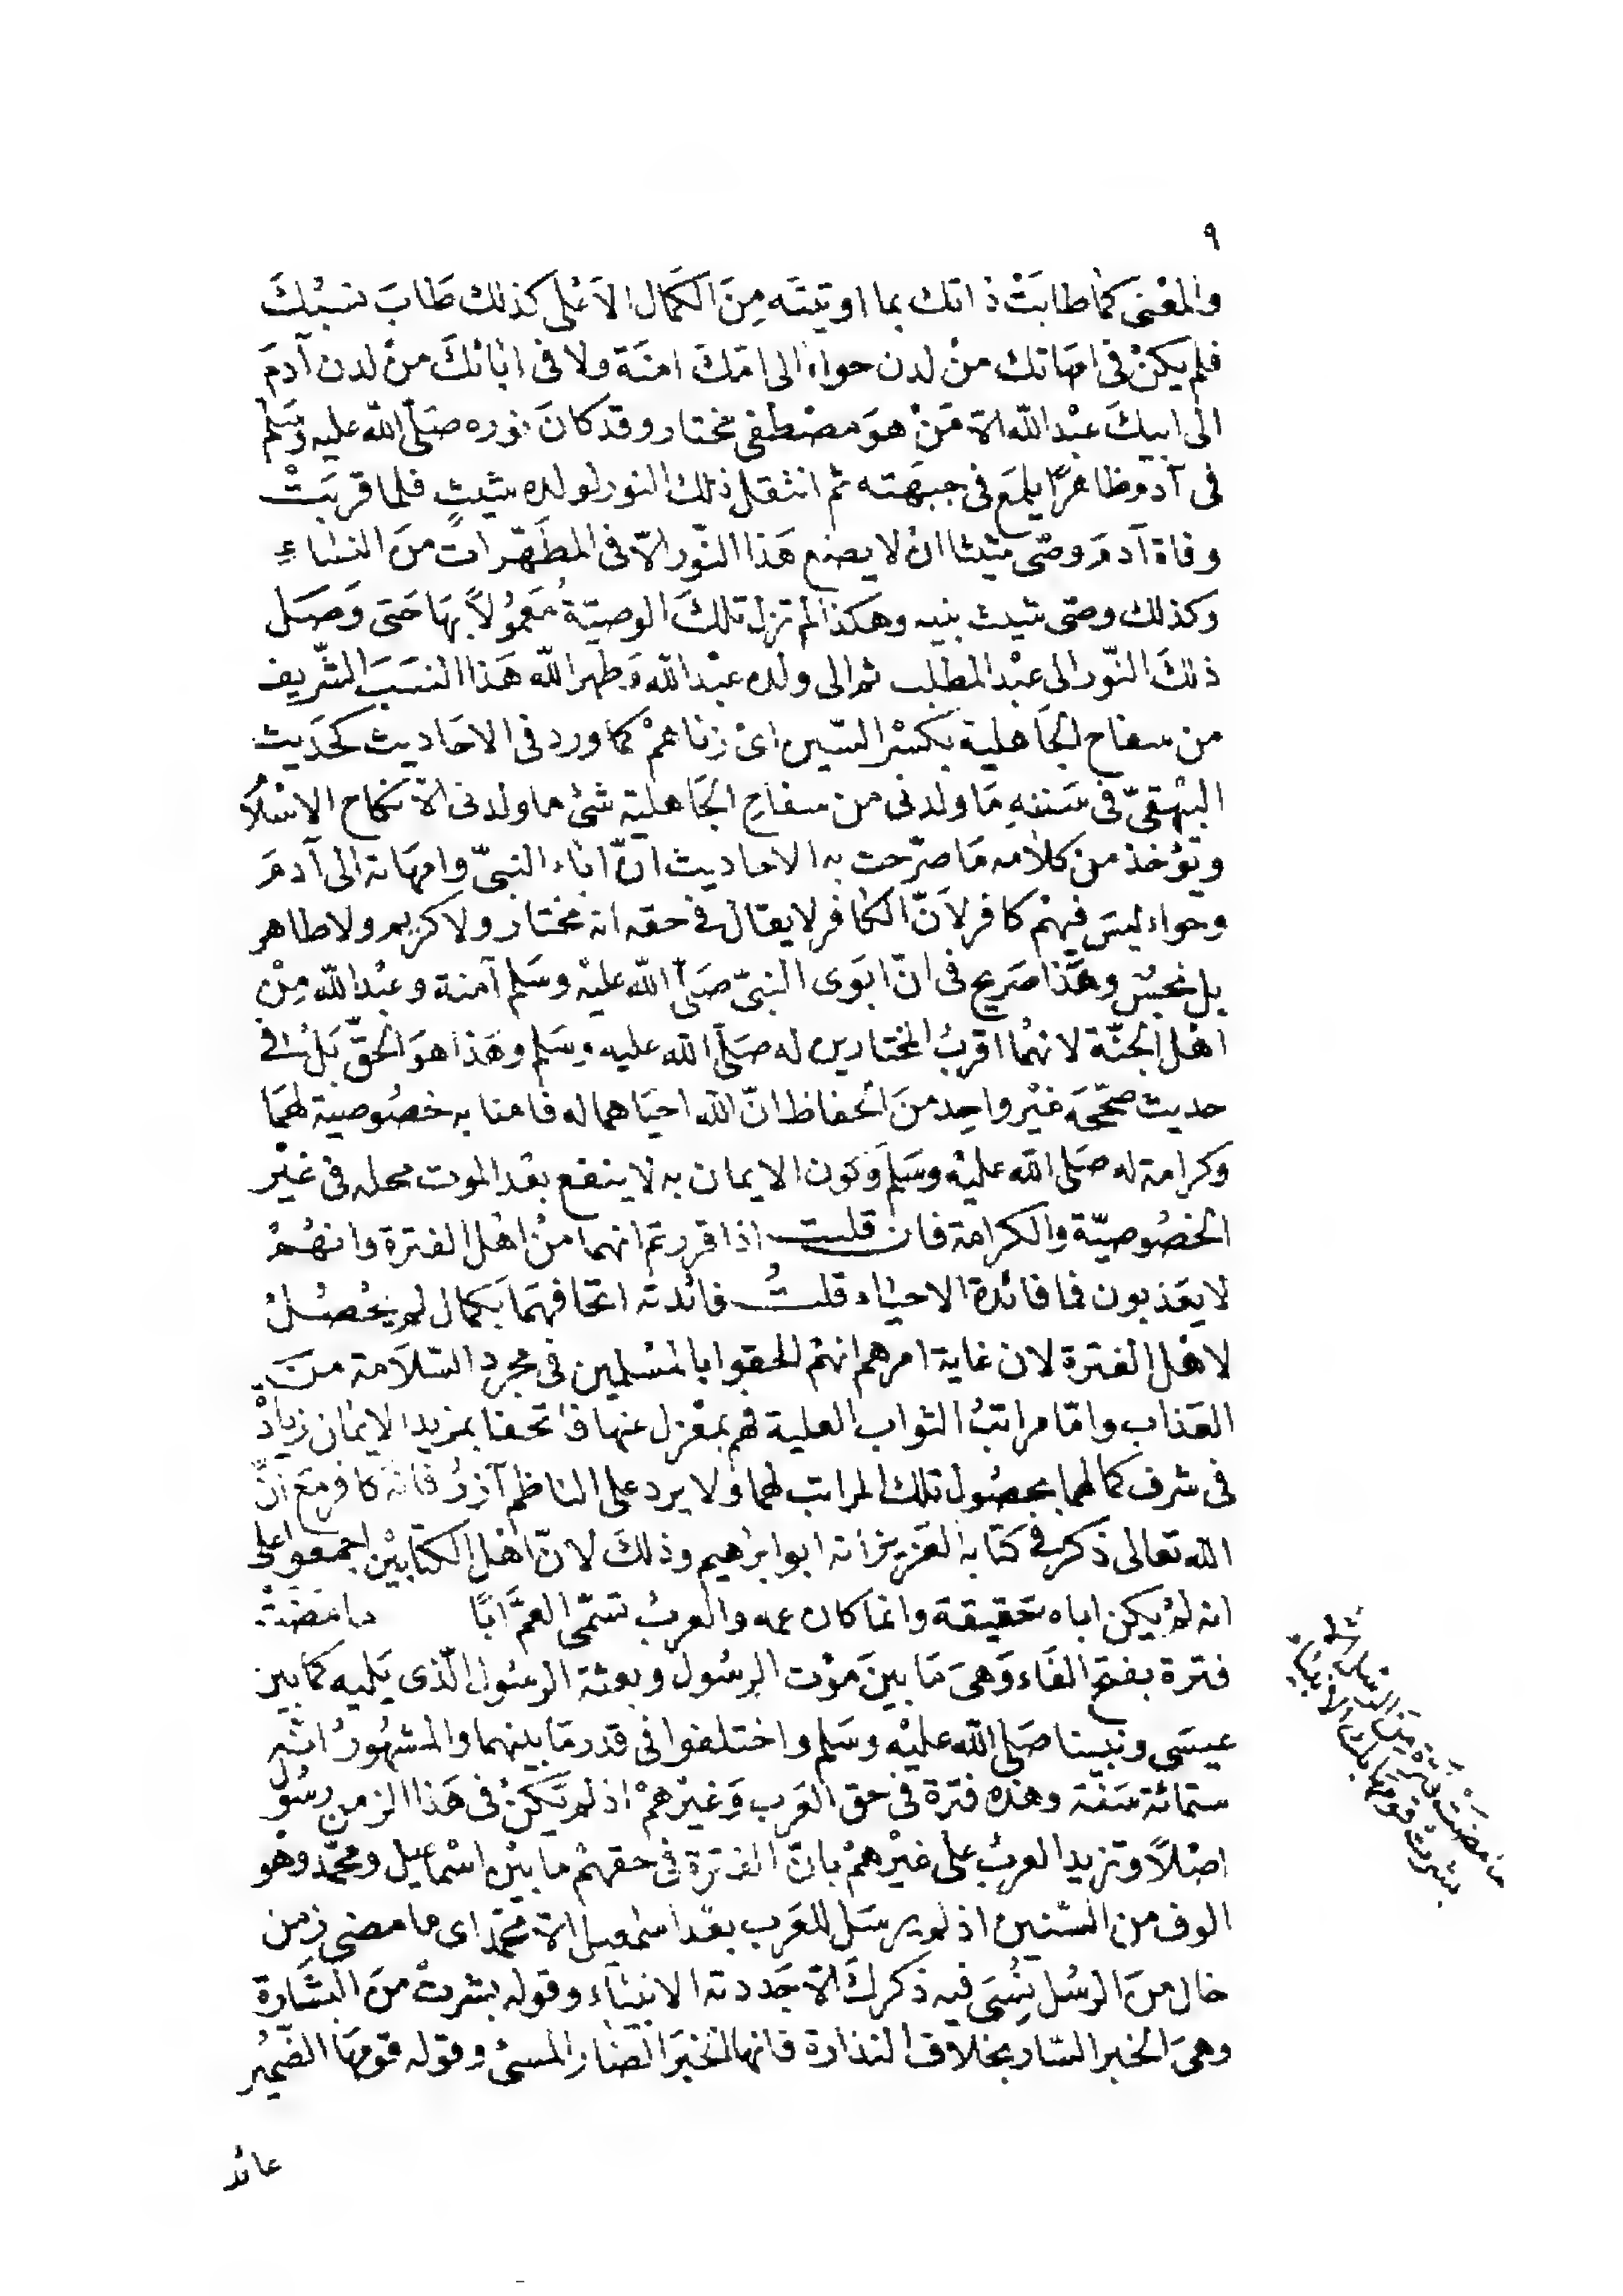 ٩
والمعْنى كما طابَتْ ذاتك بما اوتيتَه مِنَ الكمَال الاَعْلى كذلك طَابَ نسبُكَ
فلم يكنْ فى امهَاتك منْ لدن حواء الى امّكَ امنَة ولا فى ابَائكَ منْ لدن آدمَ
الى ابيكَ عبْد الله الاّ مَنْ هوَ مصْطفى مختار وقدْ كانَ نوره صَلّى الله عليه وَسَلم
فى آدم ظاهرًا يلمَع فى جبهَته ثم انتقل ذلك النور لولده شيثٍ فلما قربَتْ
وفاة آدمَ وصّى شيثا ان لا يضع هَذا النّور الاّ فى المطَهّرات منَ النسَاءِ
وكذلك وصّى شيث بنيه وهكذا لم تزل تلكَ الوصيّة مَعمُولاً بهَا حَتى وَصَل
ذلكَ النّور الى عبْد المطلب ثم الى ولده عبْد الله وَطهر الله هَذا النسَبَ الشّريف
من سفاح الجَاهلية بكسْر السّين اىْ زناهمْ كما ورد فى الاحَاديث كحَديث
البيْهقىّ فى سَننهِ مَا ولدنى من سفاحِ الجَاهلية شئ ما ولدنى الاّ نكاح الاِسْلاَم
وتؤخذ من كلاَمه مَا صرّحت به الاحاديث انّ اباء النبىّ وامهَاته الى آدمَ
وحوّاء ليسَ فيهمْ كافر لاَنّ الكافر لا يقال فى حقه انه مختار ولا كريم ولا طاهر
بل نجسٌ وهَذا صَريح فى انّ ابَوى النبىّ صَلّى الله عليْه وسَلم آمنة وعبْد الله مِنْ
اهْل الجنّة لانهُما اقربُ المختارين له صَلّى الله عليه وسَلم وهَذا هوَ الحَقّ بَلْ فى
حديث صحّحَه غيْر واحِد منَ الحفاظ انّ الله احيَاهما له فامنا به خصُوصية لهمَا
وكرامة له صَلى الله عليْه وسَلم وكون الايمان به لا ينفع بعْد الموت محله فى غيْر
الخصُوصيّة والكرامة فان قلت اذا قررتم انهما منْ اهْل الفترة وانهُمْ
لا يعَذبون فما فائدة الاحيَاء قلتُ فائدته اتحافهمَا بكمال لم يحْصُلْ
لاهْل الفترة لان غاية امرهم انهمْ الحقوا بالمسْلمين فى مجرد السّلاَمة منَ
العَذاب وامّا مراتبُ الثواب العلية فهم بمعْزل عنها فاتحفا بمزيد الايمَان زيادْ
فى شرف كمالهما بحصُول تلك المراتب لهما ولا يرد على الناظم آزرُ فانه كافر مَعَ انَّ
الله تعَالى ذكر فى كتابه العَزيز انه ابو ابرَاهيم وذلكَ لانّ اهْل الكتابيْن اجمعوا على
انه لمْ يكن اباه حَقيقة وانما كان عمه والعربُ تسَمّى العمَّ ابًا مامَضتْ
فترة بفتح الفَاء وَهىَ مَا بينَ موْت الرسُول وبعثة الرسُول الّذى يَليه كما بين
عيسَى ونبينا صَلى الله عليْه وسَلم واختلفوا فى قدر مَا بينهما والمشهُورُ انّه
ستمائة سَنَة وهَذه فترة فى حق العَرب وَغيرْهمْ اذ لم يَكنْ فى هَذا الزمن رسُول
اصْلاً وتزيد العربُ على غيْرهمْ بانّ الفترة فى حقهمْ ما بيْن اسْماعيل ومحمَّد وهْو
الوف من السّنين اذ لم يرسَل للعَرب بعْد اسْمعيل الاّ محمّد اى ما مضى زمن
خال منَ الرسُل ينُسَى فيه ذكركَ الاّ جَددته الانبيَاء وقوله بشرتْ منَ البشَارة
وهىَ الخبر السّار بخلاف النذارة فانها الخبَر الضار المسئ وقوله قوْمهَا الضّميُر
عائد
ما مضَتْ فترَة مِنَ الرّسْل الاّ
بشرتْ قومَهَا بكَ الاَنبيَاء